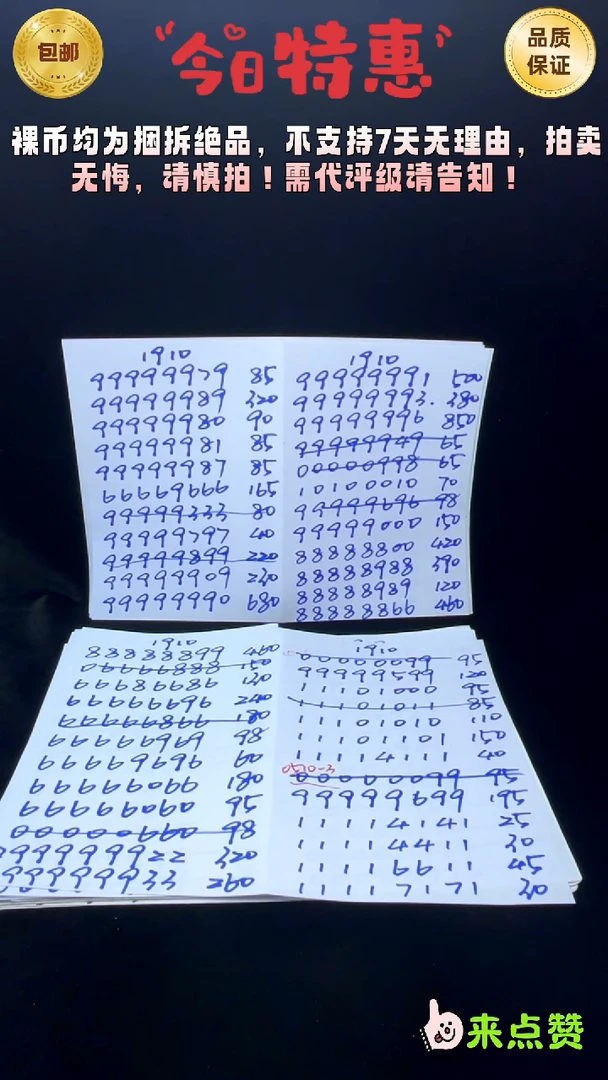 包邮
今日特惠
品质
保证
裸币均为捆拆绝品，不支持7天无理由，拍卖
无悔，请慎拍！需代评级请告知！
1910
99999979 85
99999989 320
99999980 90
99999981 85
99999987 85
66669666 165
99999333 80
99999797 40
99999899 220
99999909 230
99999990 680
1910
99999991 500
99999993. 380
99999996 850
99999949 65
00000998 65
10100010 70
99999696 98
99999000 150
88888800 420
88888988 390
88888989 120
88888866 460
1910
88888899 460
06666888 150
66686686 130
66666696 240
66666866 180
66666969 98
66669696 60
66666066 180
66666060 95
00000660 98
99999922 320
99999933 260
1910
00000099 95
99999599 120
11101000 95
11101011 85
11101010 110
11101101 150
11114111 40
0510-3
00000099 95
99999699 195
11114141 25
11114411 30
11116611 45
11117171 30
来点赞